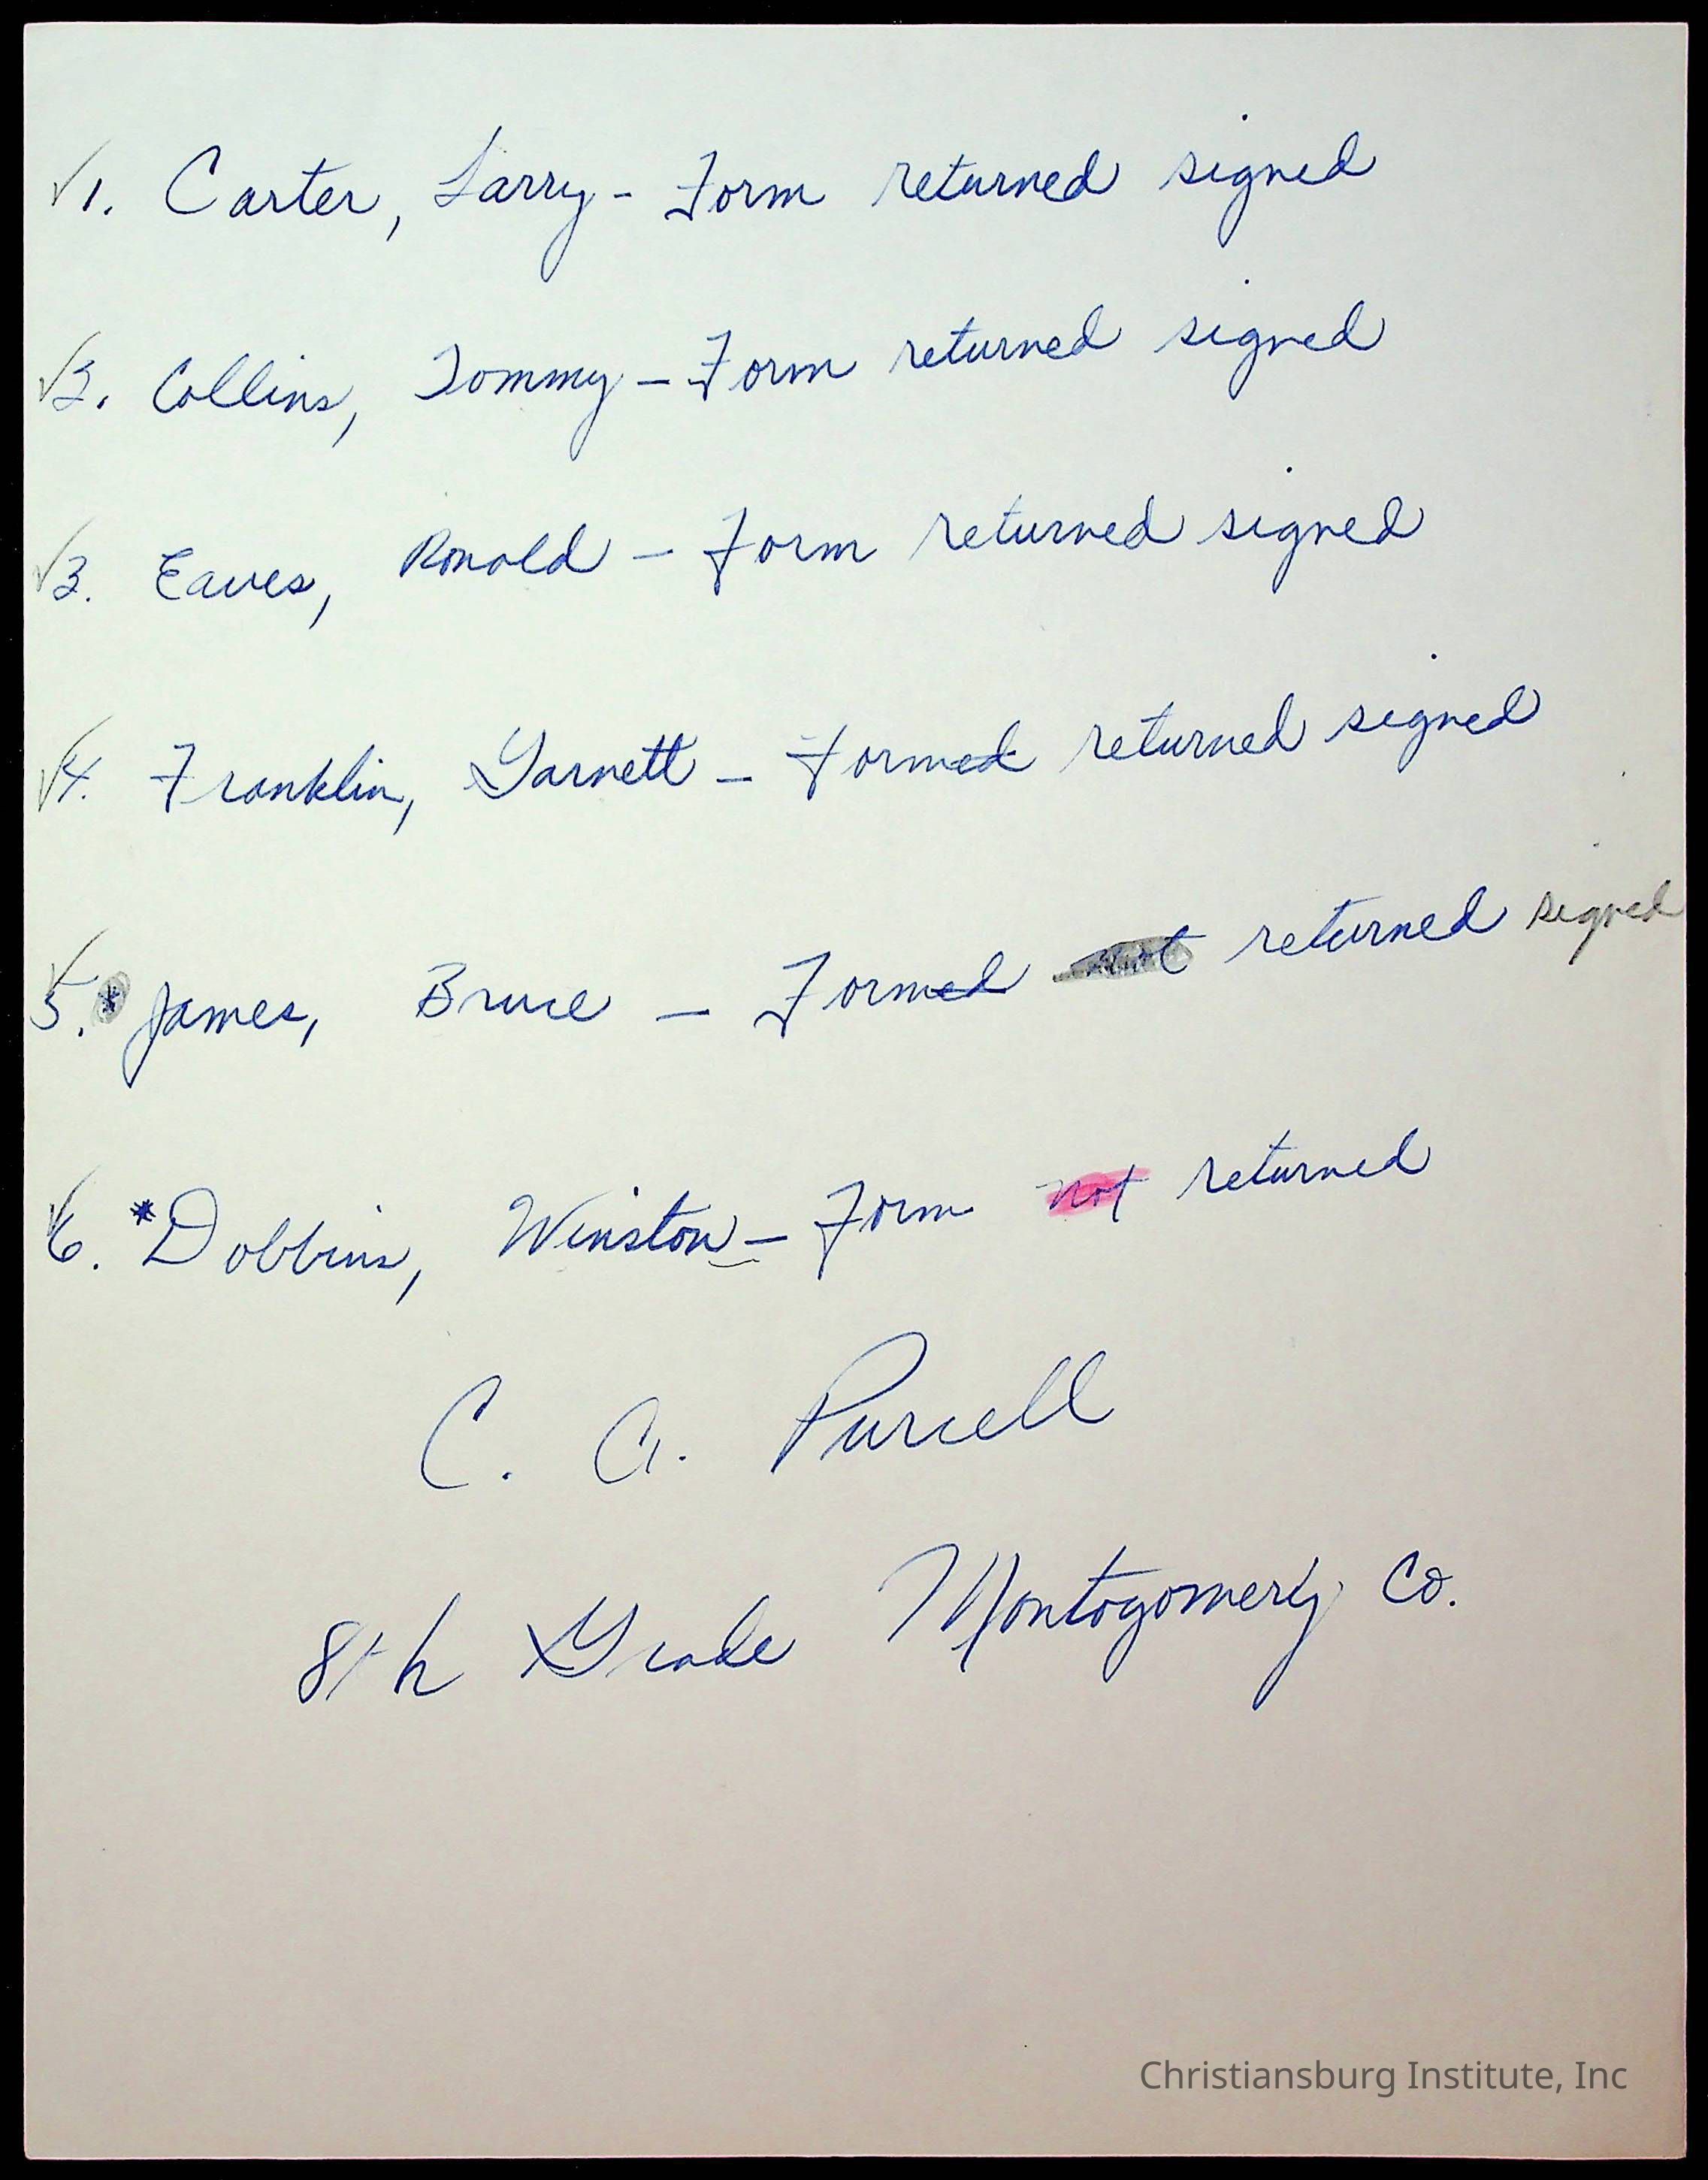 √1. Carter, Larry - Form returned signed
√2. Collins, Tommy - Form returned signed
√3. Eaves, Ronald - Form returned signed
√4. Franklin, Garnett - Formed returned signed
√5. * James, Bruce - Formed not returned signed
√6. *Dobbins, Winston - Form not returned
C. A. Purcell
8th Grade Montogomery Co.
Christiansburg Institute, Inc